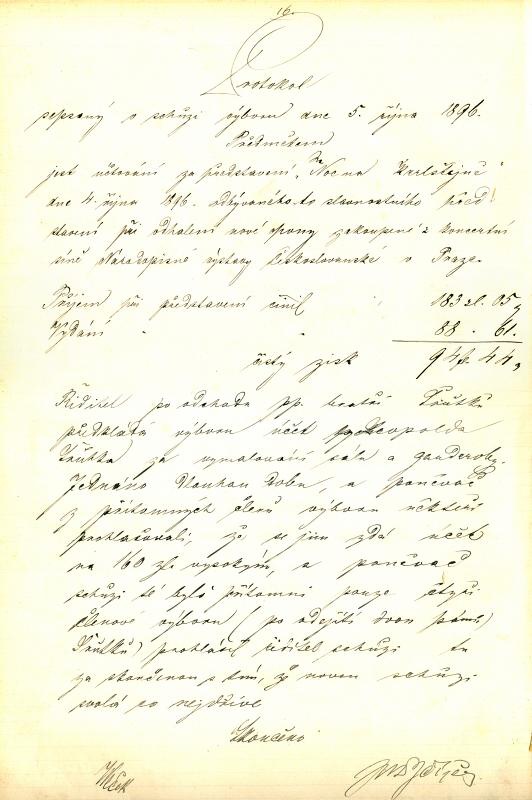 16.
Protokol
sepsaný o schůzi výboru dne 5. října 1896.
Předmětem
jest účtování za představení „Noc na Karlštejně“
dne 4. října 1896. odbývaného to slavnostního před
stavení při odhalení nové opony zakoupené z koncertní
síně Národopisné výstavy Českoslovanské v Praze.
Příjem při představení činil „ 183 zl. 05
Vydání „ „ 88 . 61.
čistý zisk 94 44
Ředitel po odchodu pp. bratří Troutků
předkládá výboru účet Leopolda
Troutka za vymalování sálu a garderoby.
Jednáno dlouhou dobu, a poněvač
z přítomných členů výboru někteří
prohlašovali, že se jim zdá účet
na 160 zl. vysokým, a poněvač
schůzi té byli přítomni pouze čtyři
členové výboru (po odejití dvou pánů
Troutků) prohlásil ředitel schůzi tu
za skončenou s tím, že novou schůzi
svolá co nejdříve
Skončeno